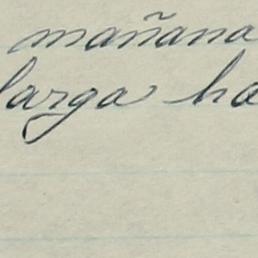 mañana
larga ha